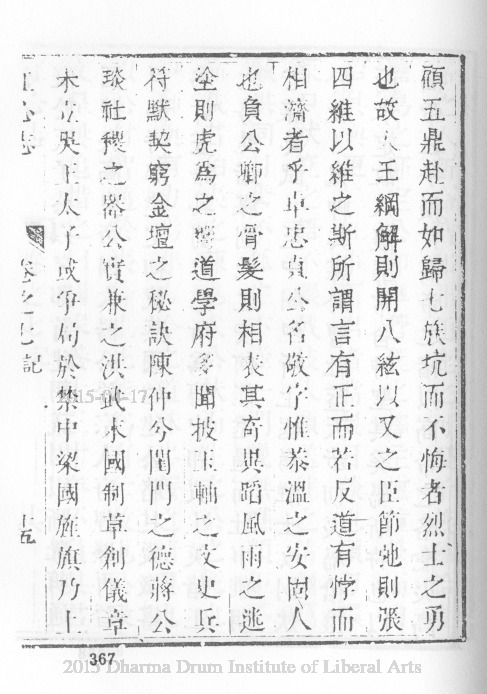 顧五鼎赴而如歸七族坑而不悔者烈士之勇
也故大王綱解則開八絃以又之臣節弛則張
四維以維之斯所謂言有正而若反道有悖而
相濟者乎卓忠貞公名敬字惟恭溫之安固人
也負公卿之骨髮則相表其奇異蹈風雨之迷
塗則虎為之嚮道學府多聞披玉軸之文史兵
符默契窮金壇之秘訣陳仲兮閨門之德蔣公
琰社稷之器公實兼之洪武末國制草創儀章
未立吳王太子或爭局於禁中梁國旌旗乃上
卷之七 記
十五
2015-04-17
367
2015 Dharma Drum Institute of Liberal Arts